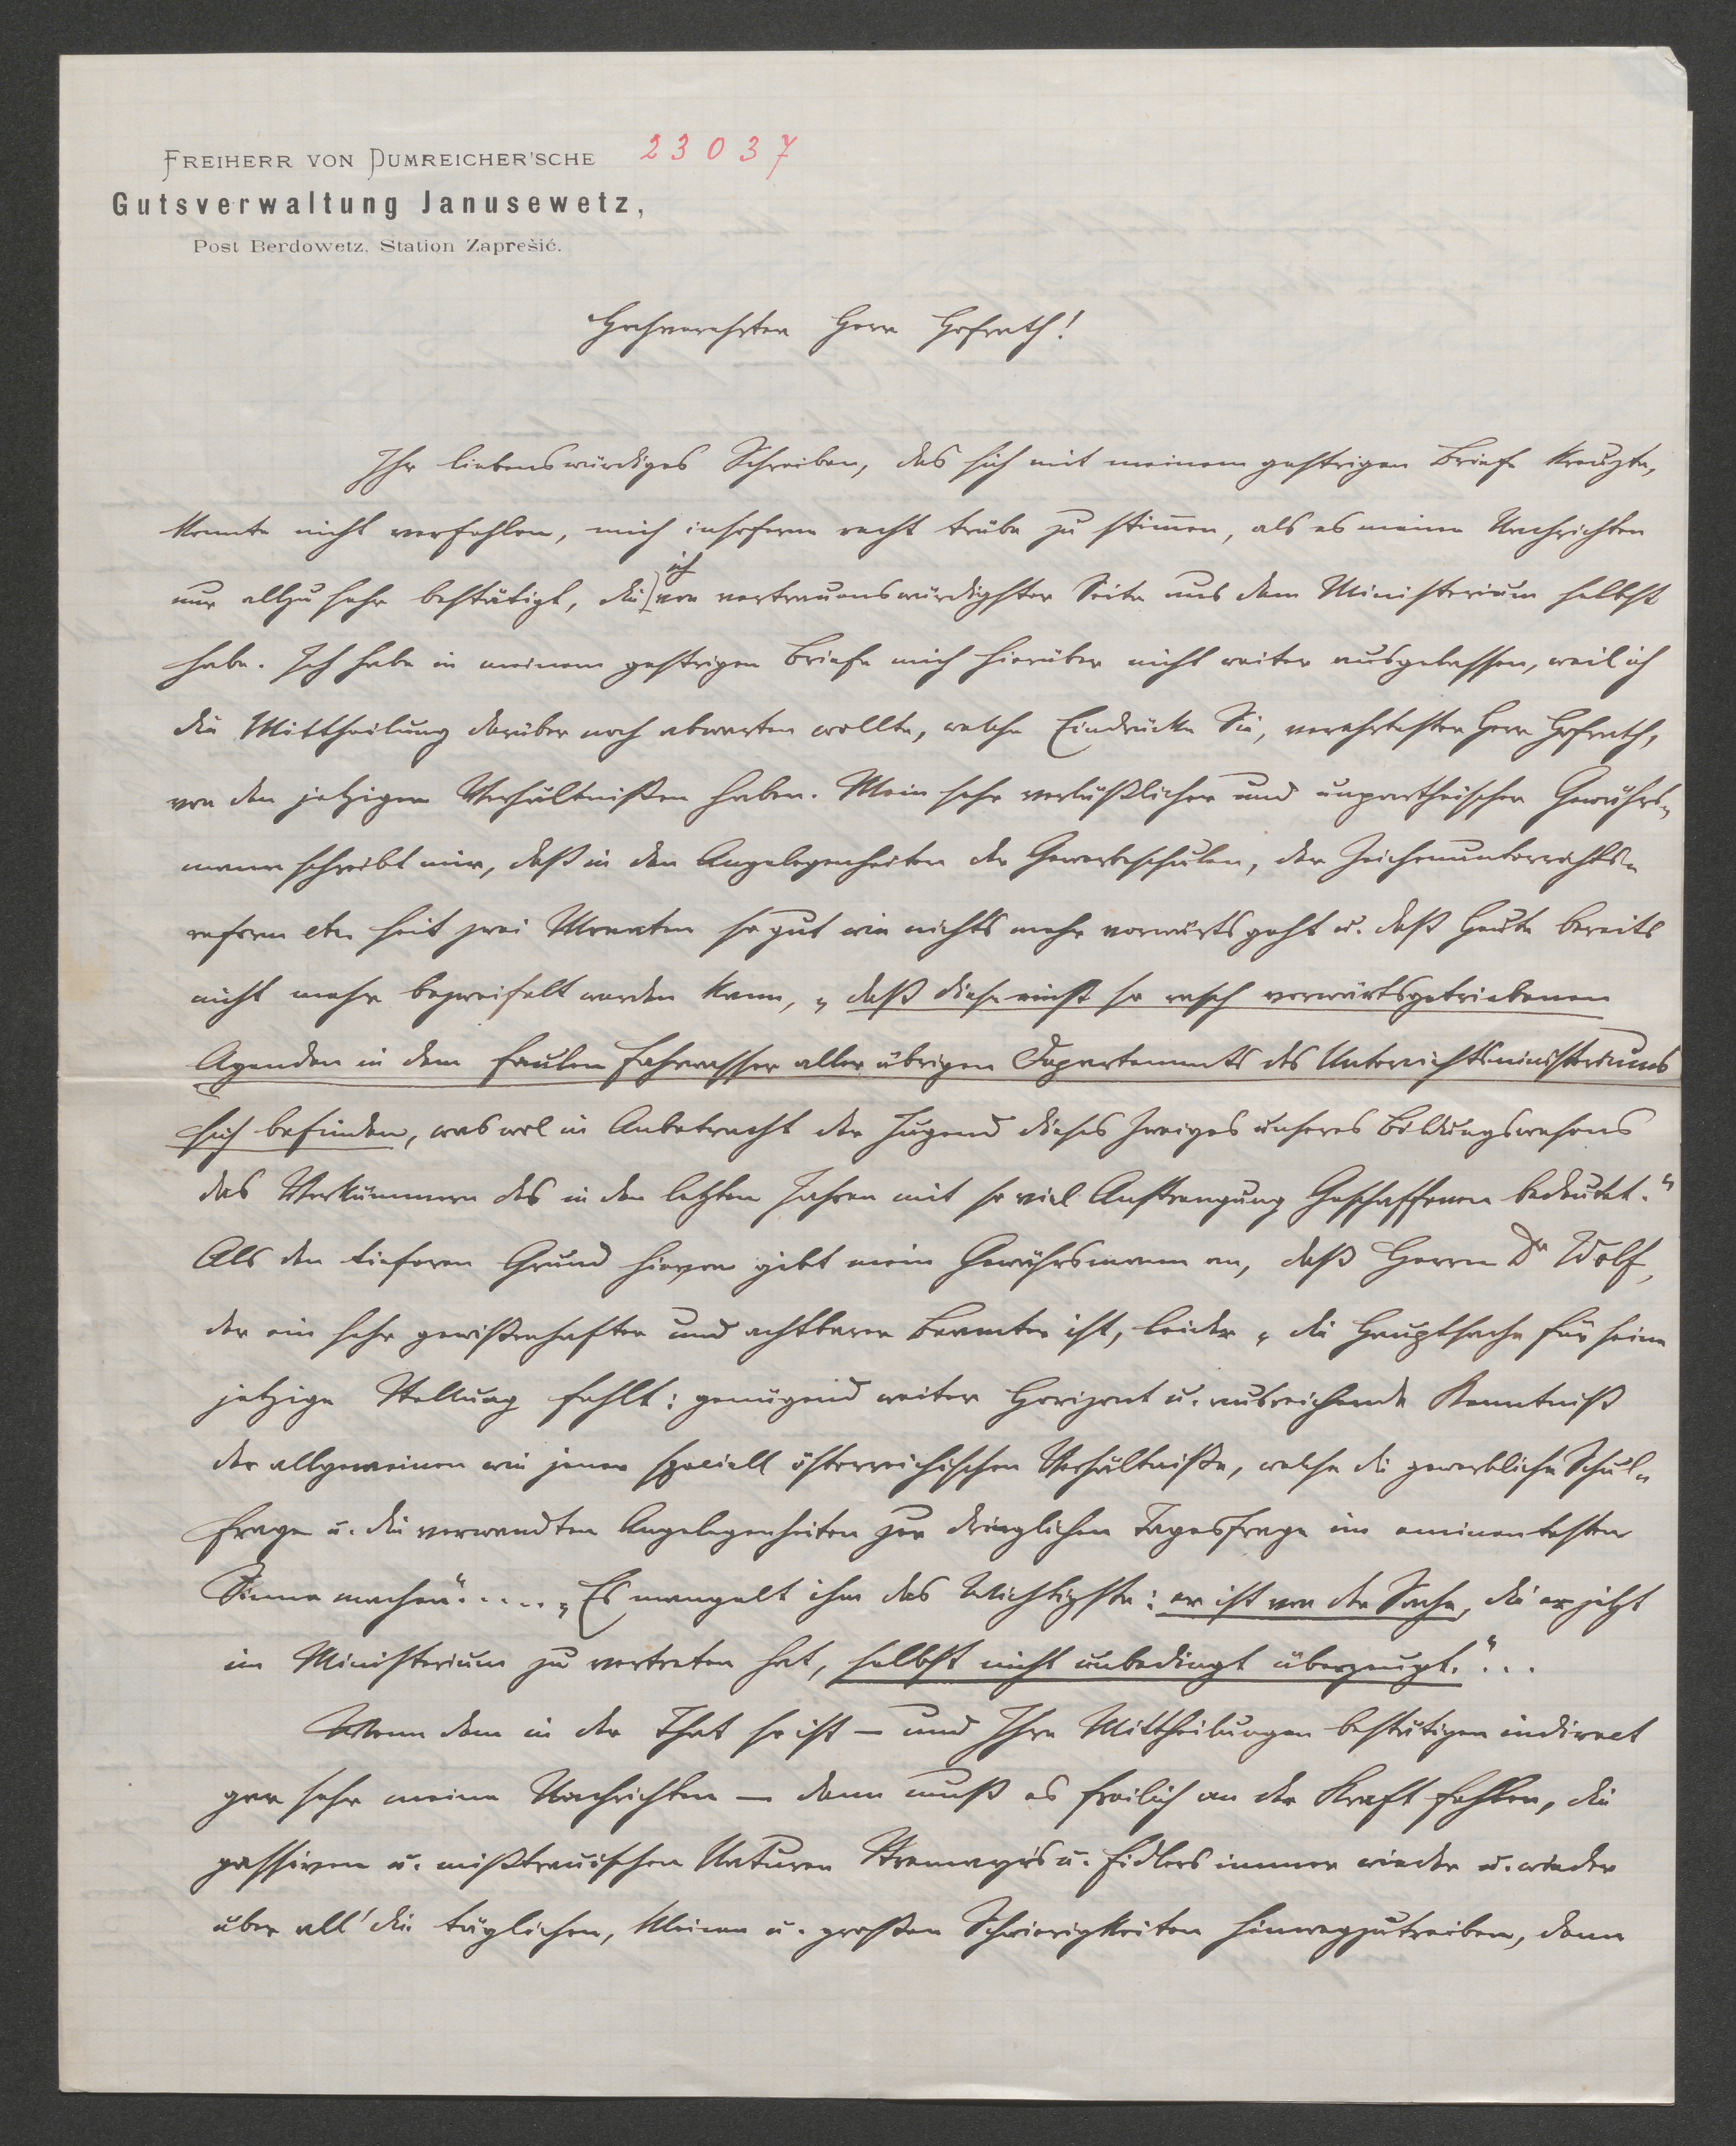 FREIHERR VON DUMREICHER'SCHE 23037
Gutsverwaltung Janusewetz,
Post Berdowetz, Station Zaprešić.
Hochverehrter Herr Hofrath!
Ihr liebenswürdiges Schreiben, das sich mit meinem gestrigen Briefe kreuzte,
konnte nicht verfehlen, mich insoferne recht trübe zu stimen, als es meine Nachrichten
nur allzu sehr bestätigt, die ich von vertrauenswürdigster Seite aus dem Ministerium selbst
habe. Ich habe in meinem gestrigen Briefe mich hierüber nicht weiter ausgelassen, weil ich
die Mittheilung darüber noch abwarten wollte, welche Eindrücke Sie, verehrtester Herr Hofrath,
von den jetzigen Verhältnißen haben. Mein sehr verläßlicher und unpartheiischer Gewährs-
mann schreibt mir, daß in den Angelegenheiten der Gewerbeschulen, der Zeichenunterrichts-
reform etc seit zwei Monaten so gut wie nichts mehr vorwärts geht u. daß heute bereits
nicht mehr bezweifelt werden kann, „daß diese einst so rasch vorwärtsgetriebenen
Agenden in dem faulen Fahrwasser aller übrigen Departements des Unterrichtsministeriums
sich befinden, was wol in Anbetracht der Jugend dieses Zweiges unseres Bildungswesens
das Verkümmern des in den letzten Jahren mit so viel Anstrengung Geschaffenen bedeutet."
Als den tieferen Grund hievon gibt mein Gewährsmann an, daß Herrn Dr Wolf,
der ein sehr gewißenhafter und achtbarer Beamter ist, leider „die Hauptsache für seine
jetzige Stellung fehlt: genügend weiter Horizont u. ausreichende Kenntniß
der allgemeinen wie jener speciell österreichischen Verhältniße, welche die gewerbliche Schul-
frage u. die verwandten Angelegenheiten zur dringlichen Tagesfrage im eminentesten
Sinne machen"..... „Es mangelt ihm das Wichtigste: er ist von der Sache, die er jetzt
im Ministerium zu vertreten hat, selbst nicht unbedingt überzeugt."...
Wenn dem in der That so ist – und Ihre Mittheilungen bestätigen indirect
gar sehr meine Nachrichten – dann muß es freilich an der Kraft fehlen, die
passiven u. mißtrauischen Naturen Stremayr's u. Fidlers immer wieder u. wieder
über all' die täglichen, kleinen u. großen Schwierigkeiten hinwegzutreiben, dann